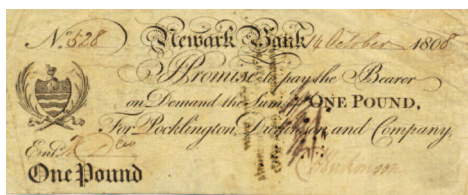 No. 528 Newark Bank 14 October 1808
I Promise to pay the Bearer
on Demand the Sum of ONE POUND,
For Pocklington, Dickinson and Company,
Entd.
One Pound